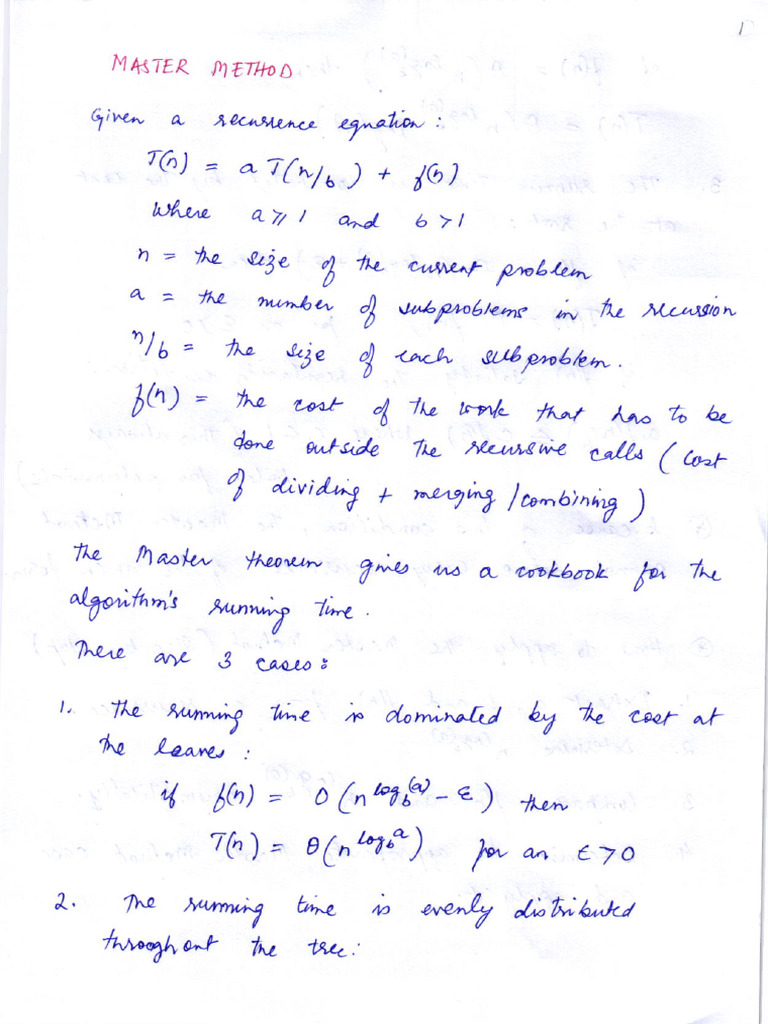 1
MASTER METHOD
Given a recurrence equation:
T(n) = a T(n/b) + f(n)
Where a ⩾ 1 and b > 1
n = the size of the current problem
a = the number of subproblems in the recursion
n/b = the size of each subproblem.
f(n) = the cost of the work that has to be
done outside the recursive calls (cost
of dividing + merging/combining)
The Master theorem gives us a cookbook for the
algorithm's running time.
There are 3 cases:
1. The running time is dominated by the cost at
the leaves:
if f(n) = O(n^log_b(a) - ε) then
T(n) = θ(n^log_b a) for an ε > 0
2. The running time is evenly distributed
throughout the tree: